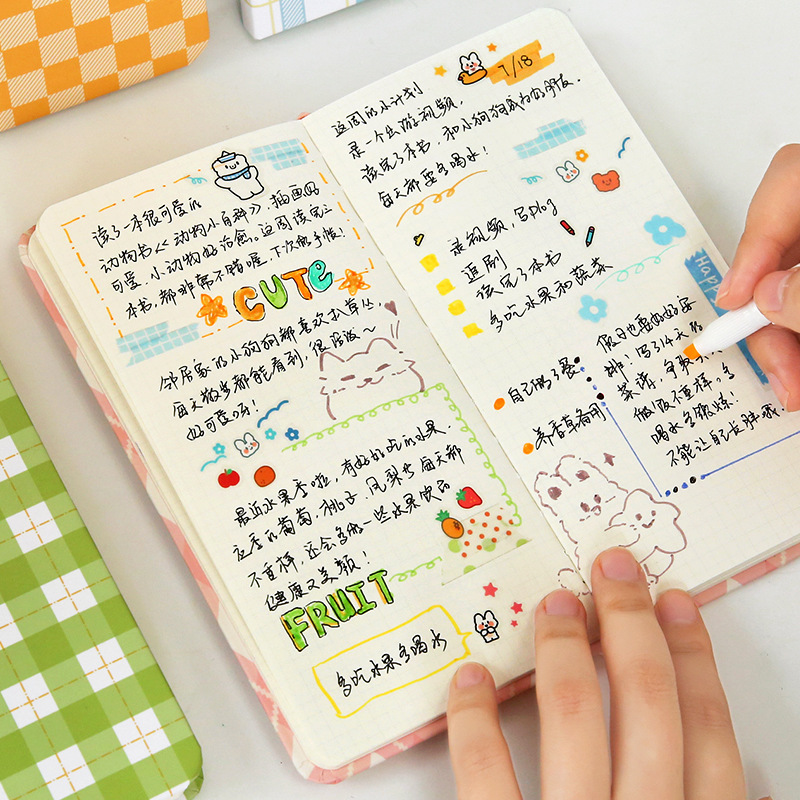 读了一本很可爱的
动物书《动物小百科》,插画好
可爱,小动物好治愈。这周读完三
本书,都非常不错喔,下次做手帐!
CUTE
邻居家的小狗狗都喜欢扒草丛,
每天散步都能看到,很活泼~
好可爱呀!
最近水果季啦,有好多好吃的水果,
应季的葡萄、桃子、凤梨 每天都
不重样,还会多做一些水果饮品
健康又美颜!
FRUIT
多吃水果多喝水
7/18
这周的小计划
是一个出游视频,
读完了本书,和小狗狗成为好朋友,
每天都要多喝水!
录视频,写plog
追剧
读完了本书
多吃水果和蔬菜
Happ
假日也要好好安
排!写了14天的
菜谱,争取
做饭不重样,多
喝水多锻炼!
不能让自己长胖哦
自己做了餐
养香草备用